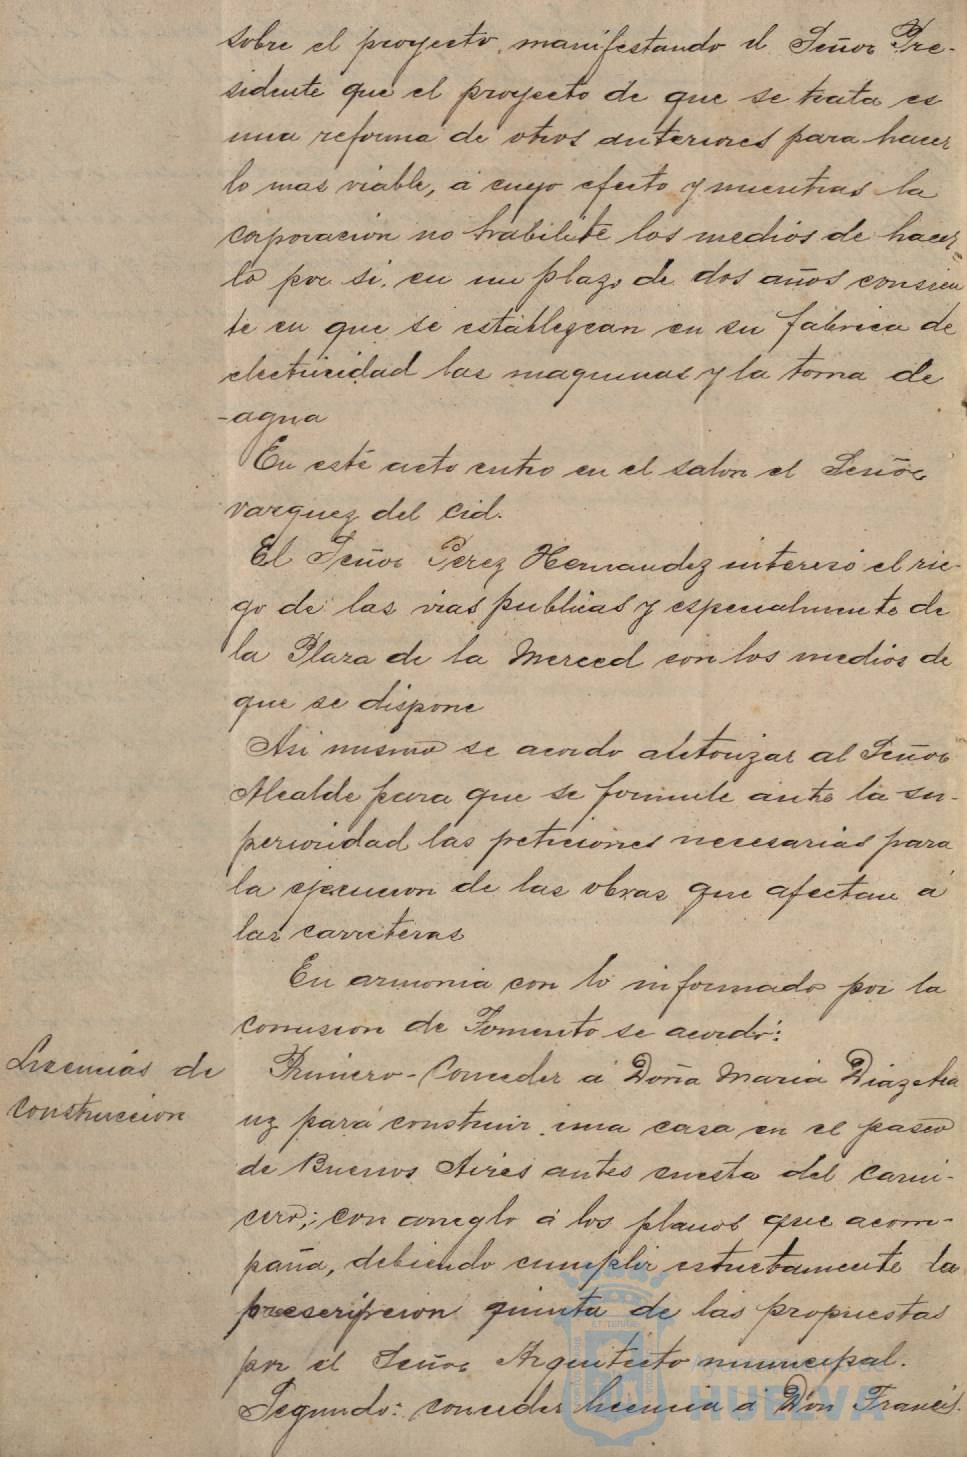 sobre el proyecto, manifestando el Señor Pre-
sidente que el proyecto de que se trata es
una reforma de otros anteriores para hacer
lo mas viable, á cuyo efecto y mientras la
corporacion no habilite los medios de hacer-
lo por si, en un plazo de dos años consien
te en que se establezcan en su fabrica de
electricidad las maquinas y la toma de
-agua
En este acto entro en el salon el Señor
Vazquez del Cid.
El Señor Perez Hernandez interesó el rie-
go de las vias publicas y especialmente de
la Plaza de la Merced con los medios de
que se dispone
Asi mismo se acordo autorizar al Señor
Alcalde para que se formule ante la su-
perioridad las peticiones necesarias para
la ejecucion de las obras que afectan á
las carreteras
En armonia con lo informado por la
comision de Fomento se acordó:
Licencias de
construccion
Primero- Conceder á Doña Maria Diaz
para construir una casa en el paseo
de Buenos Aires antes cuesta del carni-
cero; con arreglo á los planos que acom-
paña, debiendo cumplir estrictamente la
prescripcion quinta de las propuestas
por el Señor Arquitecto municipal.
Segundo: conceder licencia á Don Francis.
HUELVA